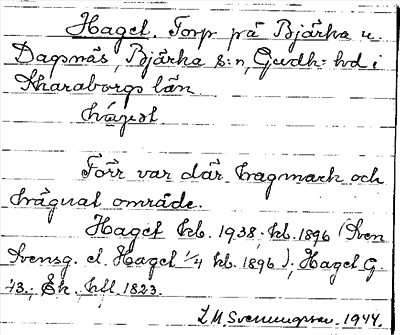 Haget. Torp på Bjärka u.
Dagsnäs, Bjärka s:n, Gudh: hd i
Skaraborgs län.
Förr var där hagmark och
inägnat område.
Haget kb. 1938; kb. 1896 (Sven
Svensg. el. Haget 1/4 kb. 1896); Haget G.
73; Ek. hfl. 1823.
L. M. Svenungsson. 1944.